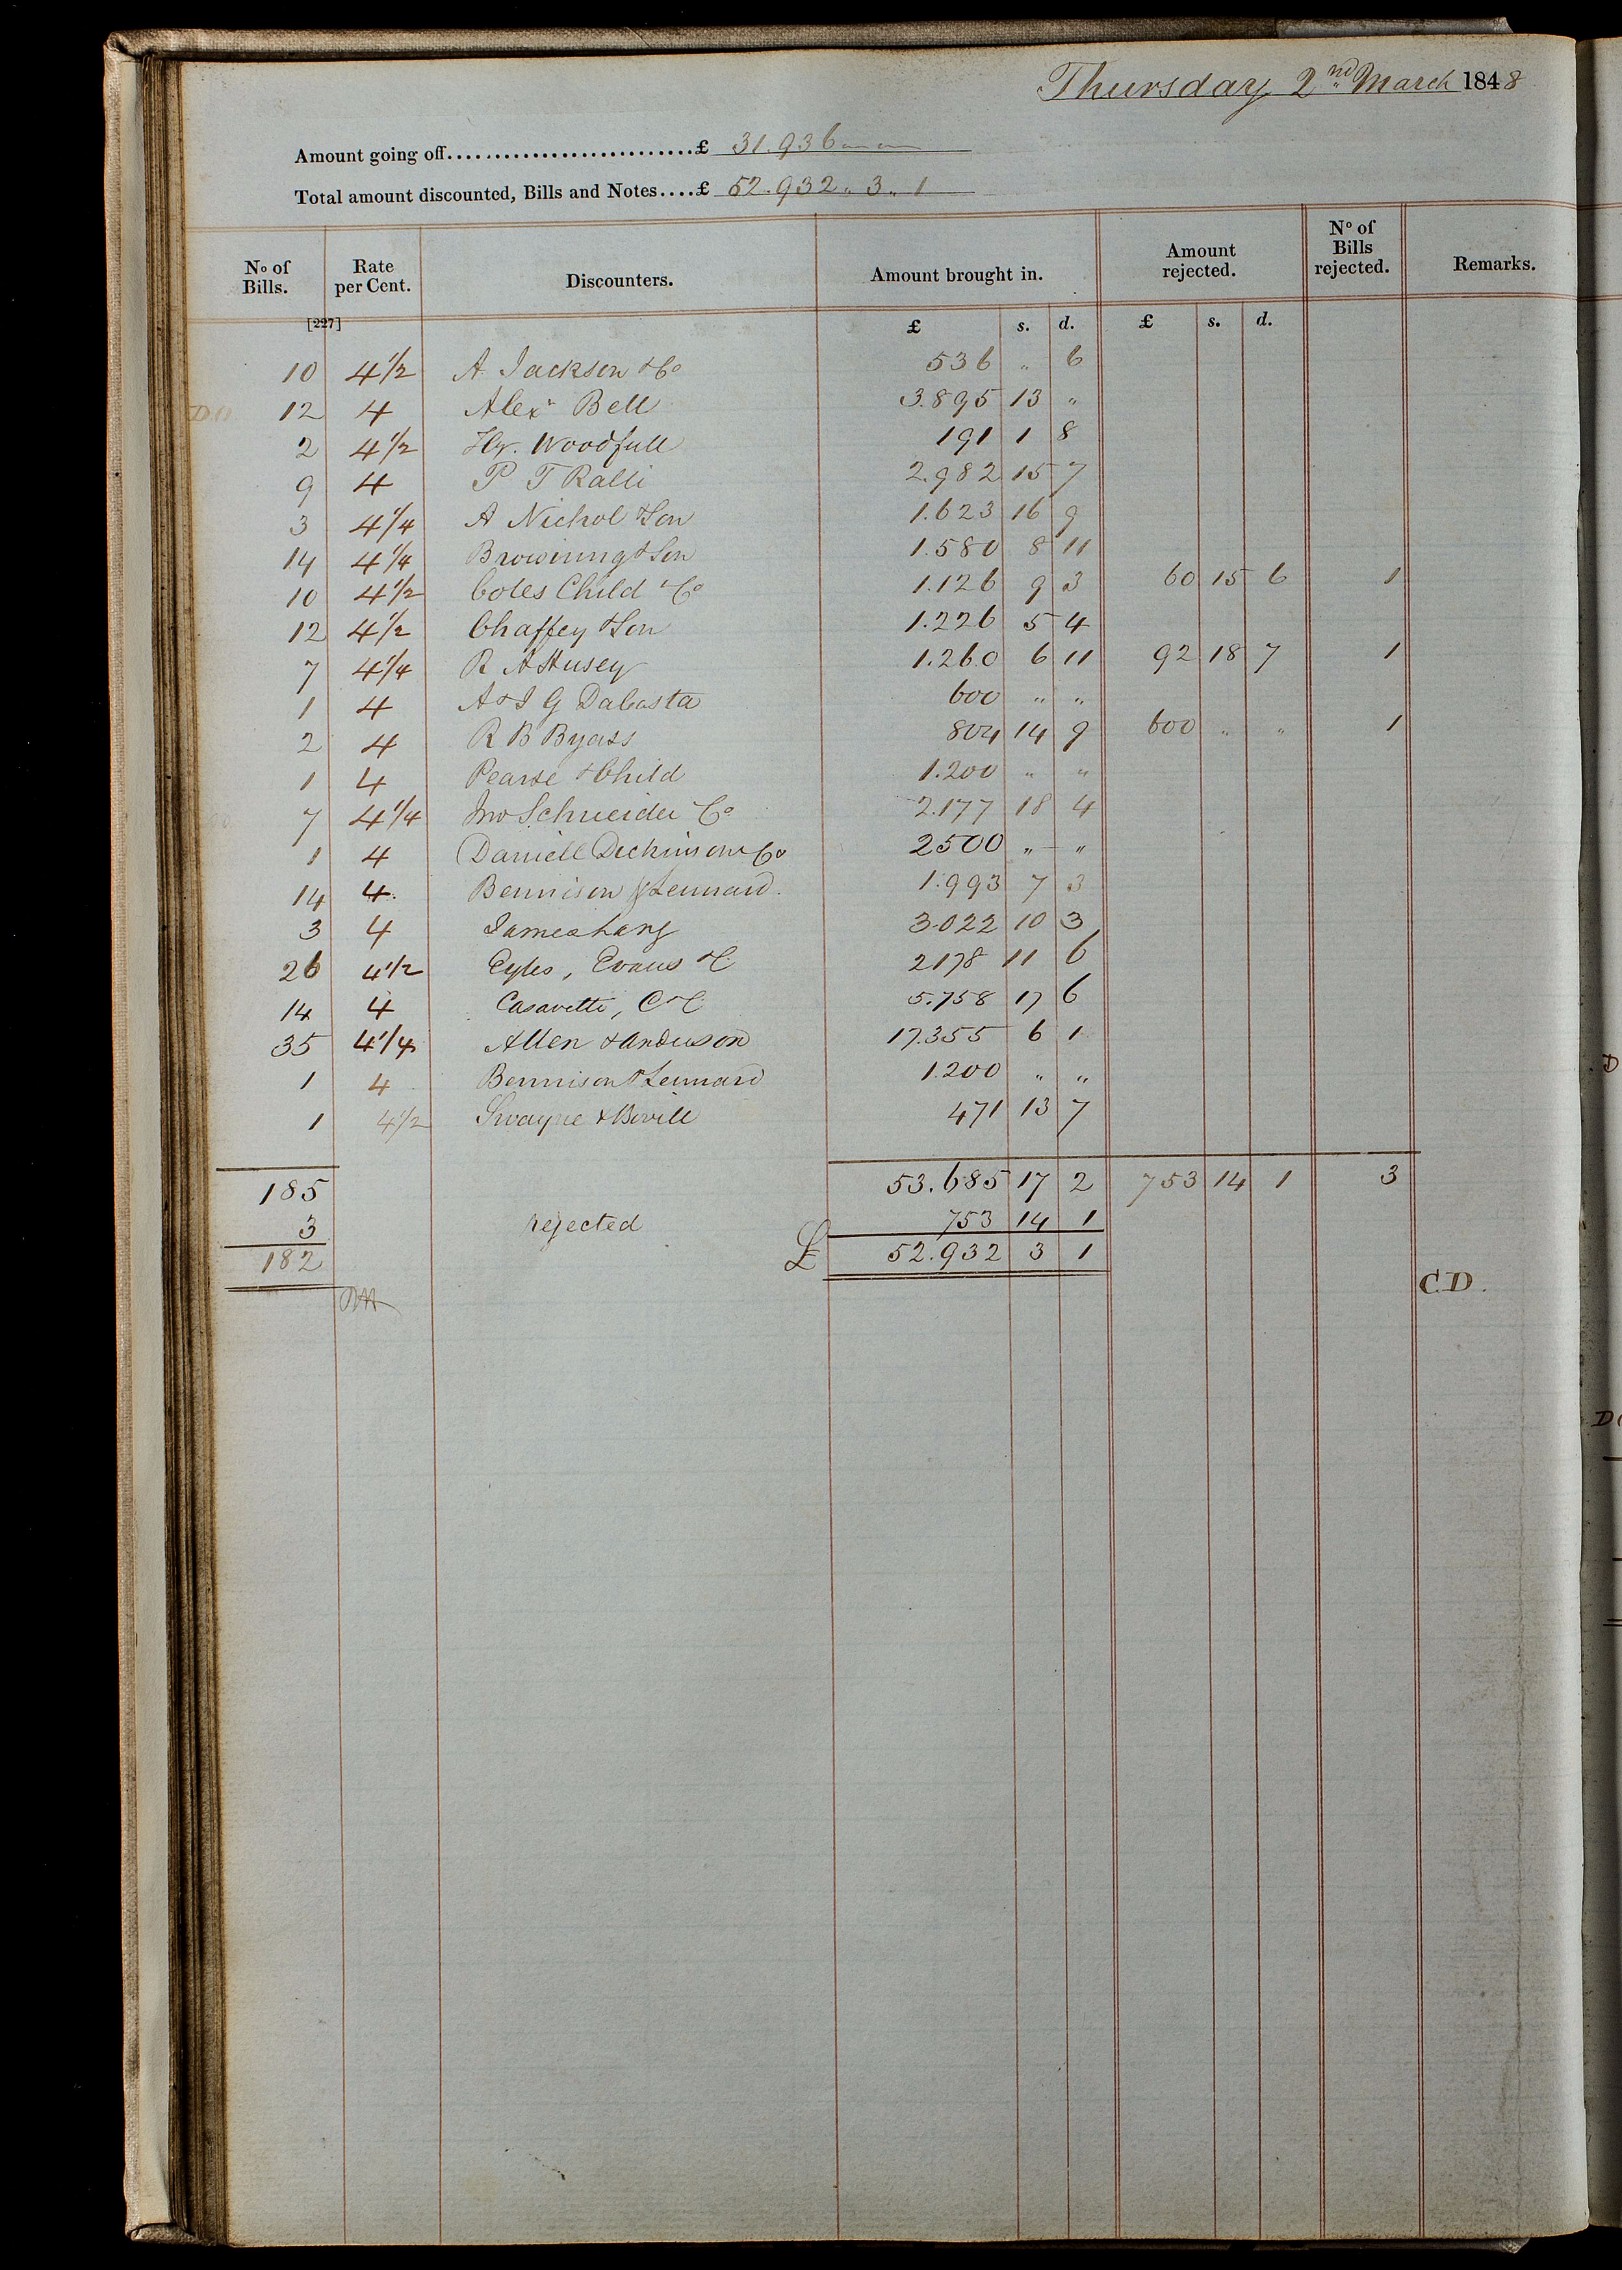 Thursday 2nd March 1848
Amount going off..........................£ 31.936 " "
Total amount discounted, Bills and Notes....£ 52.932 " 3 " 1
No of Bills. Rate per Cent. Discounters. Amount brought in. Amount rejected. No of Bills rejected. Remarks.
[227] £ s. d. £ s. d.
10 4 1/2 A. Jackson & Co 536 " 6
12 4 Alexr Bell 3.895 13 "
2 4 1/2 Hy. Woodfull 191 1 8
9 4 P T Ralli 2.982 15 7
3 4 1/4 A Nichol & Son 1.623 16 9
14 4 1/4 Browning & Son 1.580 8 11
10 4 1/2 Coles Child & Co 1.126 9 3 60 15 6 1
12 4 1/2 Chaffey & Son 1.226 5 4
7 4 1/4 R A Husey 1.260 6 11 92 18 7 1
1 4 A & J G DaCosta 600 " "
2 4 R B Byass 804 14 9 600 " " 1
1 4 Pearse & Child 1.200 " "
7 4 1/4 Jno Schneider & Co 2.177 18 4
1 4 Daniell Dickinson & Co 2500 " "
14 4 Bennison & Lennard 1.993 7 3
3 4 James Lang 3.022 10 3
26 4 1/2 Eyles, Evans & C 2178 11 6
14 4 Casavetti, C & C 5.758 17 6
35 4 1/4 Allen & Anderson 17.355 6 1
1 4 Bennison & Lennard 1.200 " "
1 4 1/2 Swayne & Bovill 471 13 7
185 53.685 17 2 753 14 1 3
3 rejected 753 14 1
182 £ 52.932 3 1
C.D.